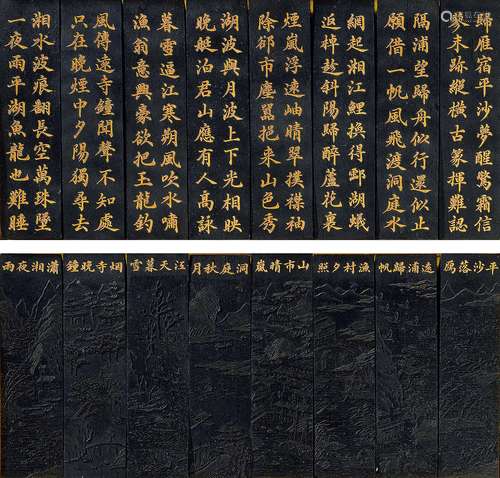 歸雁宿平沙夢醒驚霜信
跡縱橫古篆揮難認
隔浦望歸舟似行還似止
願借一帆風飛渡洞庭水
網起湘江鯉換得酃湖蟻
返棹趁斜陽歸醉蘆花裏
煙嵐浮遠岫晴翠撲襟袖
除卻市塵囂把來山色秀
湖波與月波上下光相映
晚艇泊君山應有人高詠
暮雪逼江寒朔風吹水嘯
漁翁意興豪欲把玉龍釣
風傳遠寺鐘聞聲不知處
只在晚煙中夕陽獨尋去
湘水波痕翻長空萬珠墜
一夜雨平湖魚龍也難睡
平沙落雁
遠浦歸帆
漁村夕照
山市晴嵐
洞庭秋月
江天暮雪
烟寺晚鐘
瀟湘夜雨